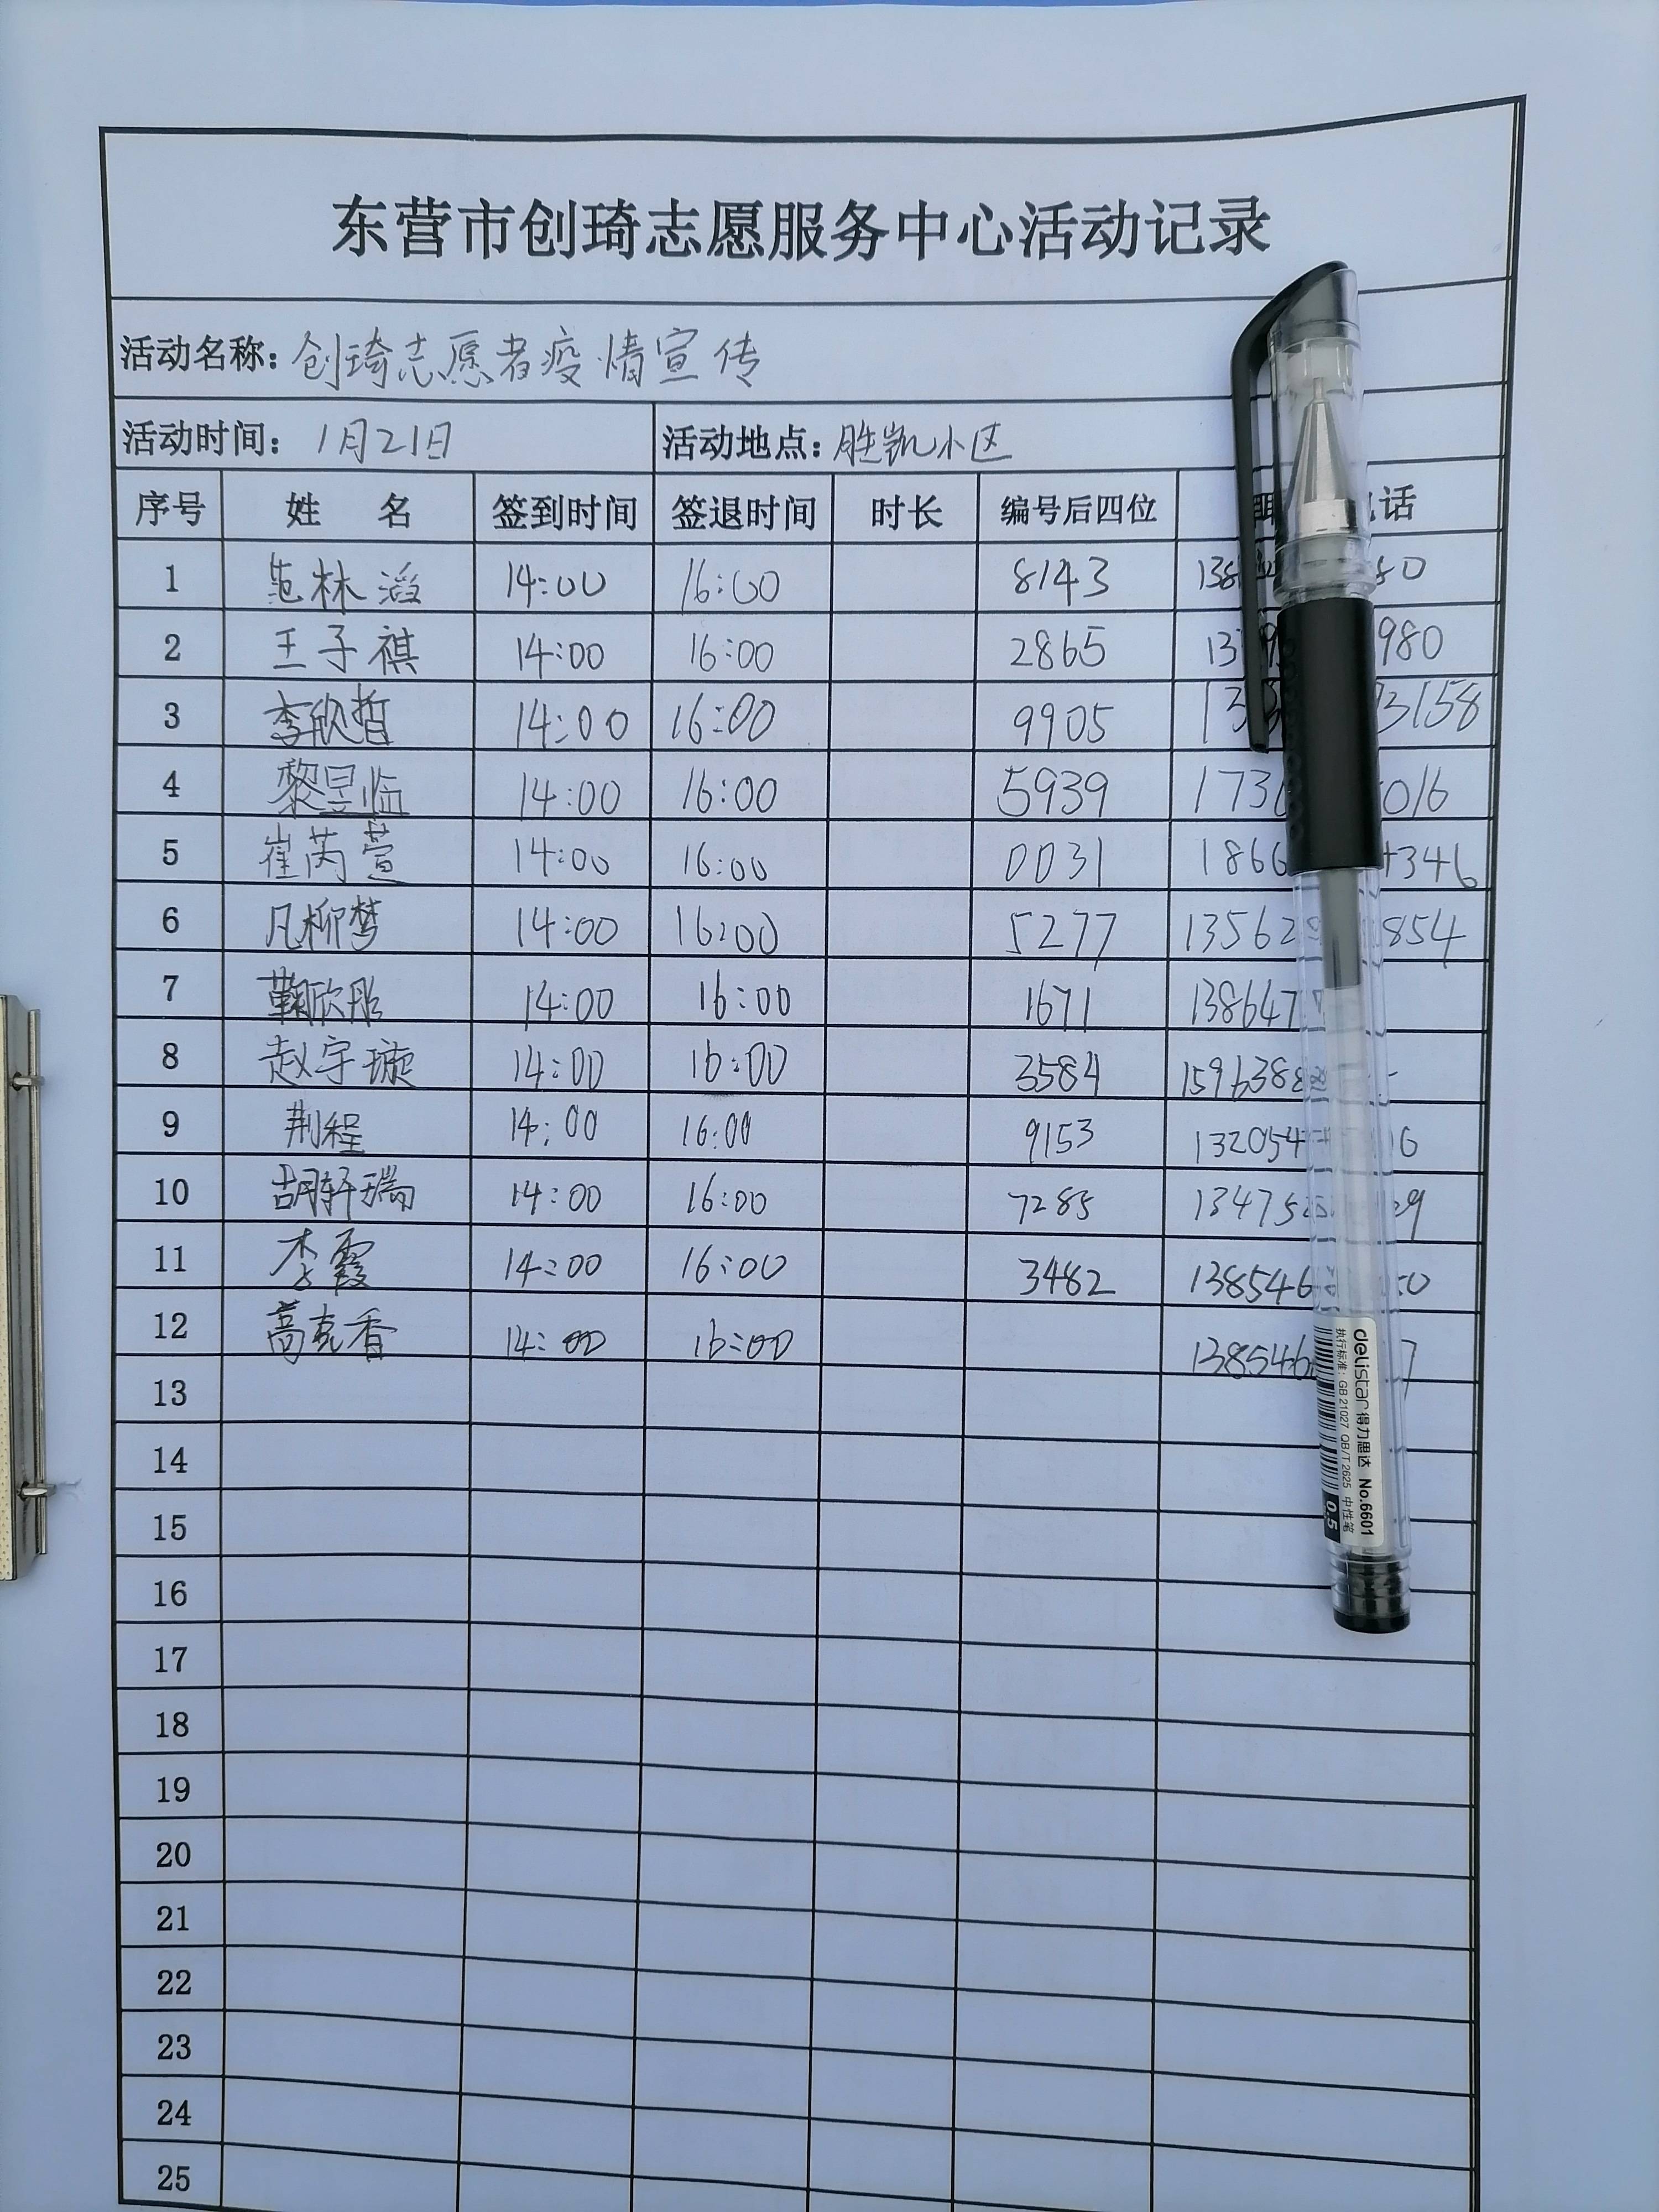 东营市创琦志愿服务中心活动记录
活动名称: 创琦志愿者疫情宣传
活动时间: 1月21日 活动地点: 胜凯小区
序号 姓名 签到时间 签退时间 时长 编号后四位 话
1 范林滔 14:00 16:00 8143
2 王子祺 14:00 16:00 2865 980
3 李欣哲 14:00 16:00 9905 3158
4 黎昱临 14:00 16:00 5939 173 016
5 崔芮萱 14:00 16:00 0031 1866 346
6 凡柳梦 14:00 16:00 5277 13562 854
7 鞠欣彤 14:00 16:00 1671 138647
8 赵宇璇 14:00 16:00 3584 1596388
9 荆程 14:00 16:00 9153 132054
10 胡轩瑞 14:00 16:00 7285 13475
11 李霞 14:00 16:00 3482 138546
12 高克香 14:00 16:00 138546 7
13
14
15
16
17
18
19
20
21
22
23
24
25
delistar 得力思达 No.6601
执行标准: GB 21027 QB/T 2625 中性笔
0.5